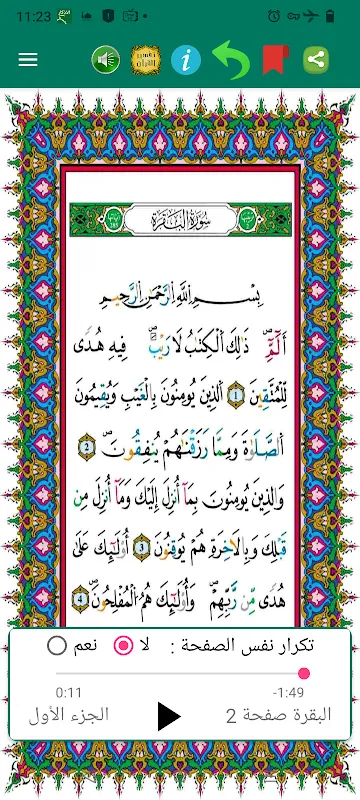 11:23
سُورَةُ الْبَقَرَةِ
بِسْمِ اللَّهِ الرَّحْمَٰنِ الرَّحِيمِ
الٓمٓۖ ذَٰلِكَ الْكِتَٰبُ لَا رَيْبَۛ فِيهِ هُدًى
لِّلْمُتَّقِينَ 1 الَّذِينَ يُومِنُونَ بِالْغَيْبِ وَيُقِيمُونَ
الصَّلَوٰةَ وَمِمَّا رَزَقْنَٰهُمْ يُنفِقُونَۖ 2
وَالَّذِينَ يُومِنُونَ بِمَا أُنزِلَ إِلَيْكَ وَمَا أُنزِلَ مِن
قَبْلِكَ وَبِالَاخِرَةِ هُمْ يُوقِنُونَ 3 أُوْلَٰٓئِكَ عَلَىٰ
هُدًى مِّن رَّبِّهِمْۖ وَأُوْلَٰٓئِكَ هُمُ الْمُفْلِحُونَۖ 4
تكرار نفس الصفحة : لا نعم
0:11 -1:49
البقرة صفحة 2 الجزء الأول